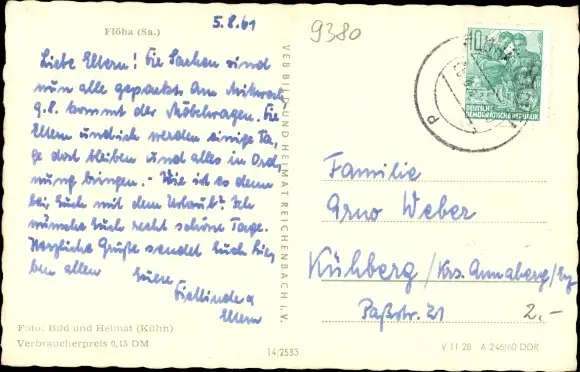 Flöha (Sa.)
5.8.61
9380
Liebe Eltern! Die Sachen sind
nun alle gepackt. Am Mittwoch
9.8. kommt der Möbelwagen. Die
Eltern und ich werden einige Ta-
ge dort bleiben und alles in Ord-
nung bringen. - Wie ist es denn
bei Euch mit dem Urlaub? Ich
wünsche Euch recht schöne Tage.
Herzliche Grüße sendet Euch Lie-
ben allen Eure
Eltern
VEB BILD UND HEIMAT REICHENBACH i. V.
DEUTSCHE
DEMOKRATISCHE REPUBLIK
Familie
Arno Weber
Kühberg / Krs. Annaberg / Erz
Paßstr. 21
2.-
Foto: Bild und Heimat (Kühn)
Verbraucherpreis 0,15 DM
14/2583
V 11 28 A 246/60 DDR